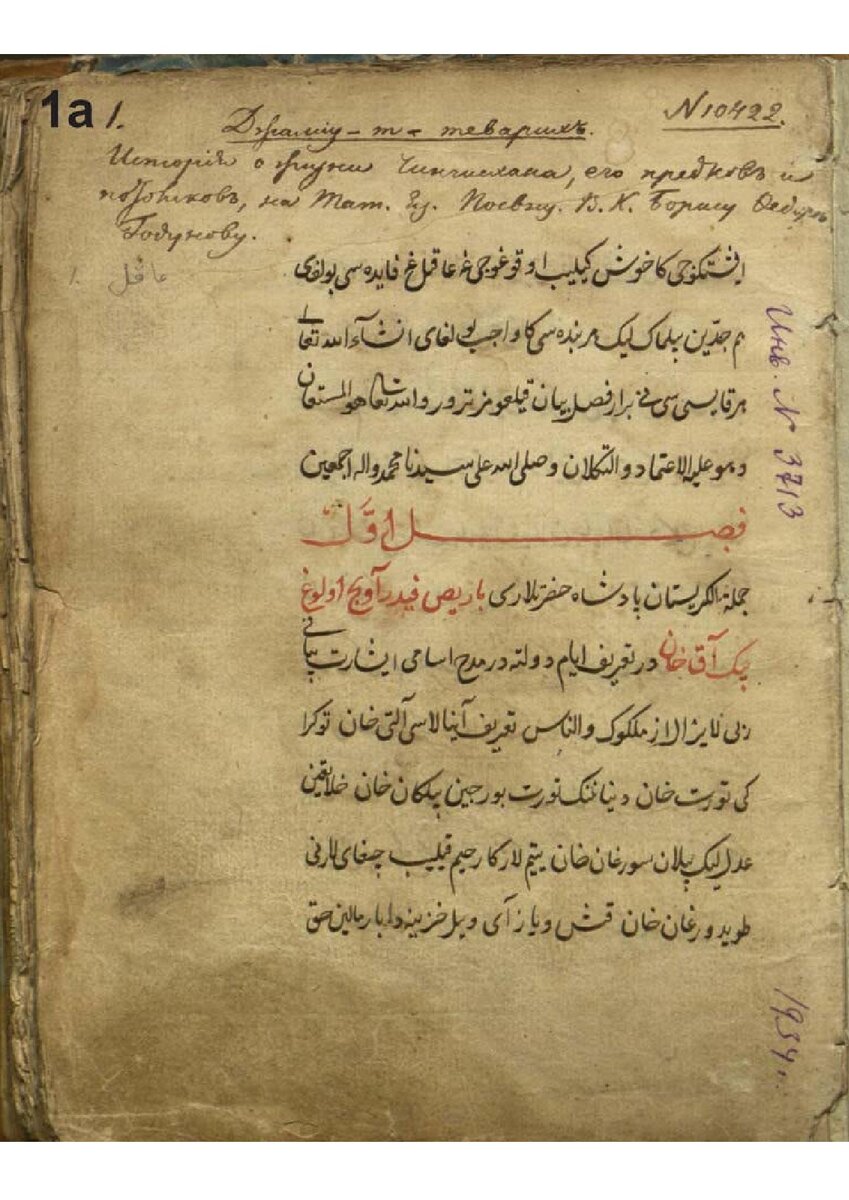 1a 1.
Джамiу-т-теварихъ.
N 10422.
Исторiя о жизни Чингисхана, его предковъ и
потомковъ, на Тат. яз. Посвящ. В. К. Борису Федор.
Годунову.
عاقل
ایشتکوجی کا خوش کیلیب اوقوغوجی غه عاقل غه فایده سی بولغای
هم جدین بیلماک لیک هر بنده سی کا واجب بولغای انشآء الله تعالی
هر قایسی سی نی بر ار فصل بیان قیلغومزترور والله تعالی هو المستعان
وهو علیه الاعتماد والتکلان وصلی الله علی سیدنا محمد واله اجمعین
فصل اوّل
جملة الکریستان پادشاه حضرتلاری باریص فیدراویج اولوغ
بیک آق خان در تعریف ایام دولته در مدح اسامی
والناس تعریف آلتی خان
کی تورت خان دنیا ننک تورت بورجین بیلکان خان خلایقین
عدل لیک بیلان سورغان خان یتیم لارکا رحیم قیلیب چغای لارنی
طویدورغان خان قش و یاز آی و ییل خزینه دا بار مالین حق
Инв. N 3713
1934 г.